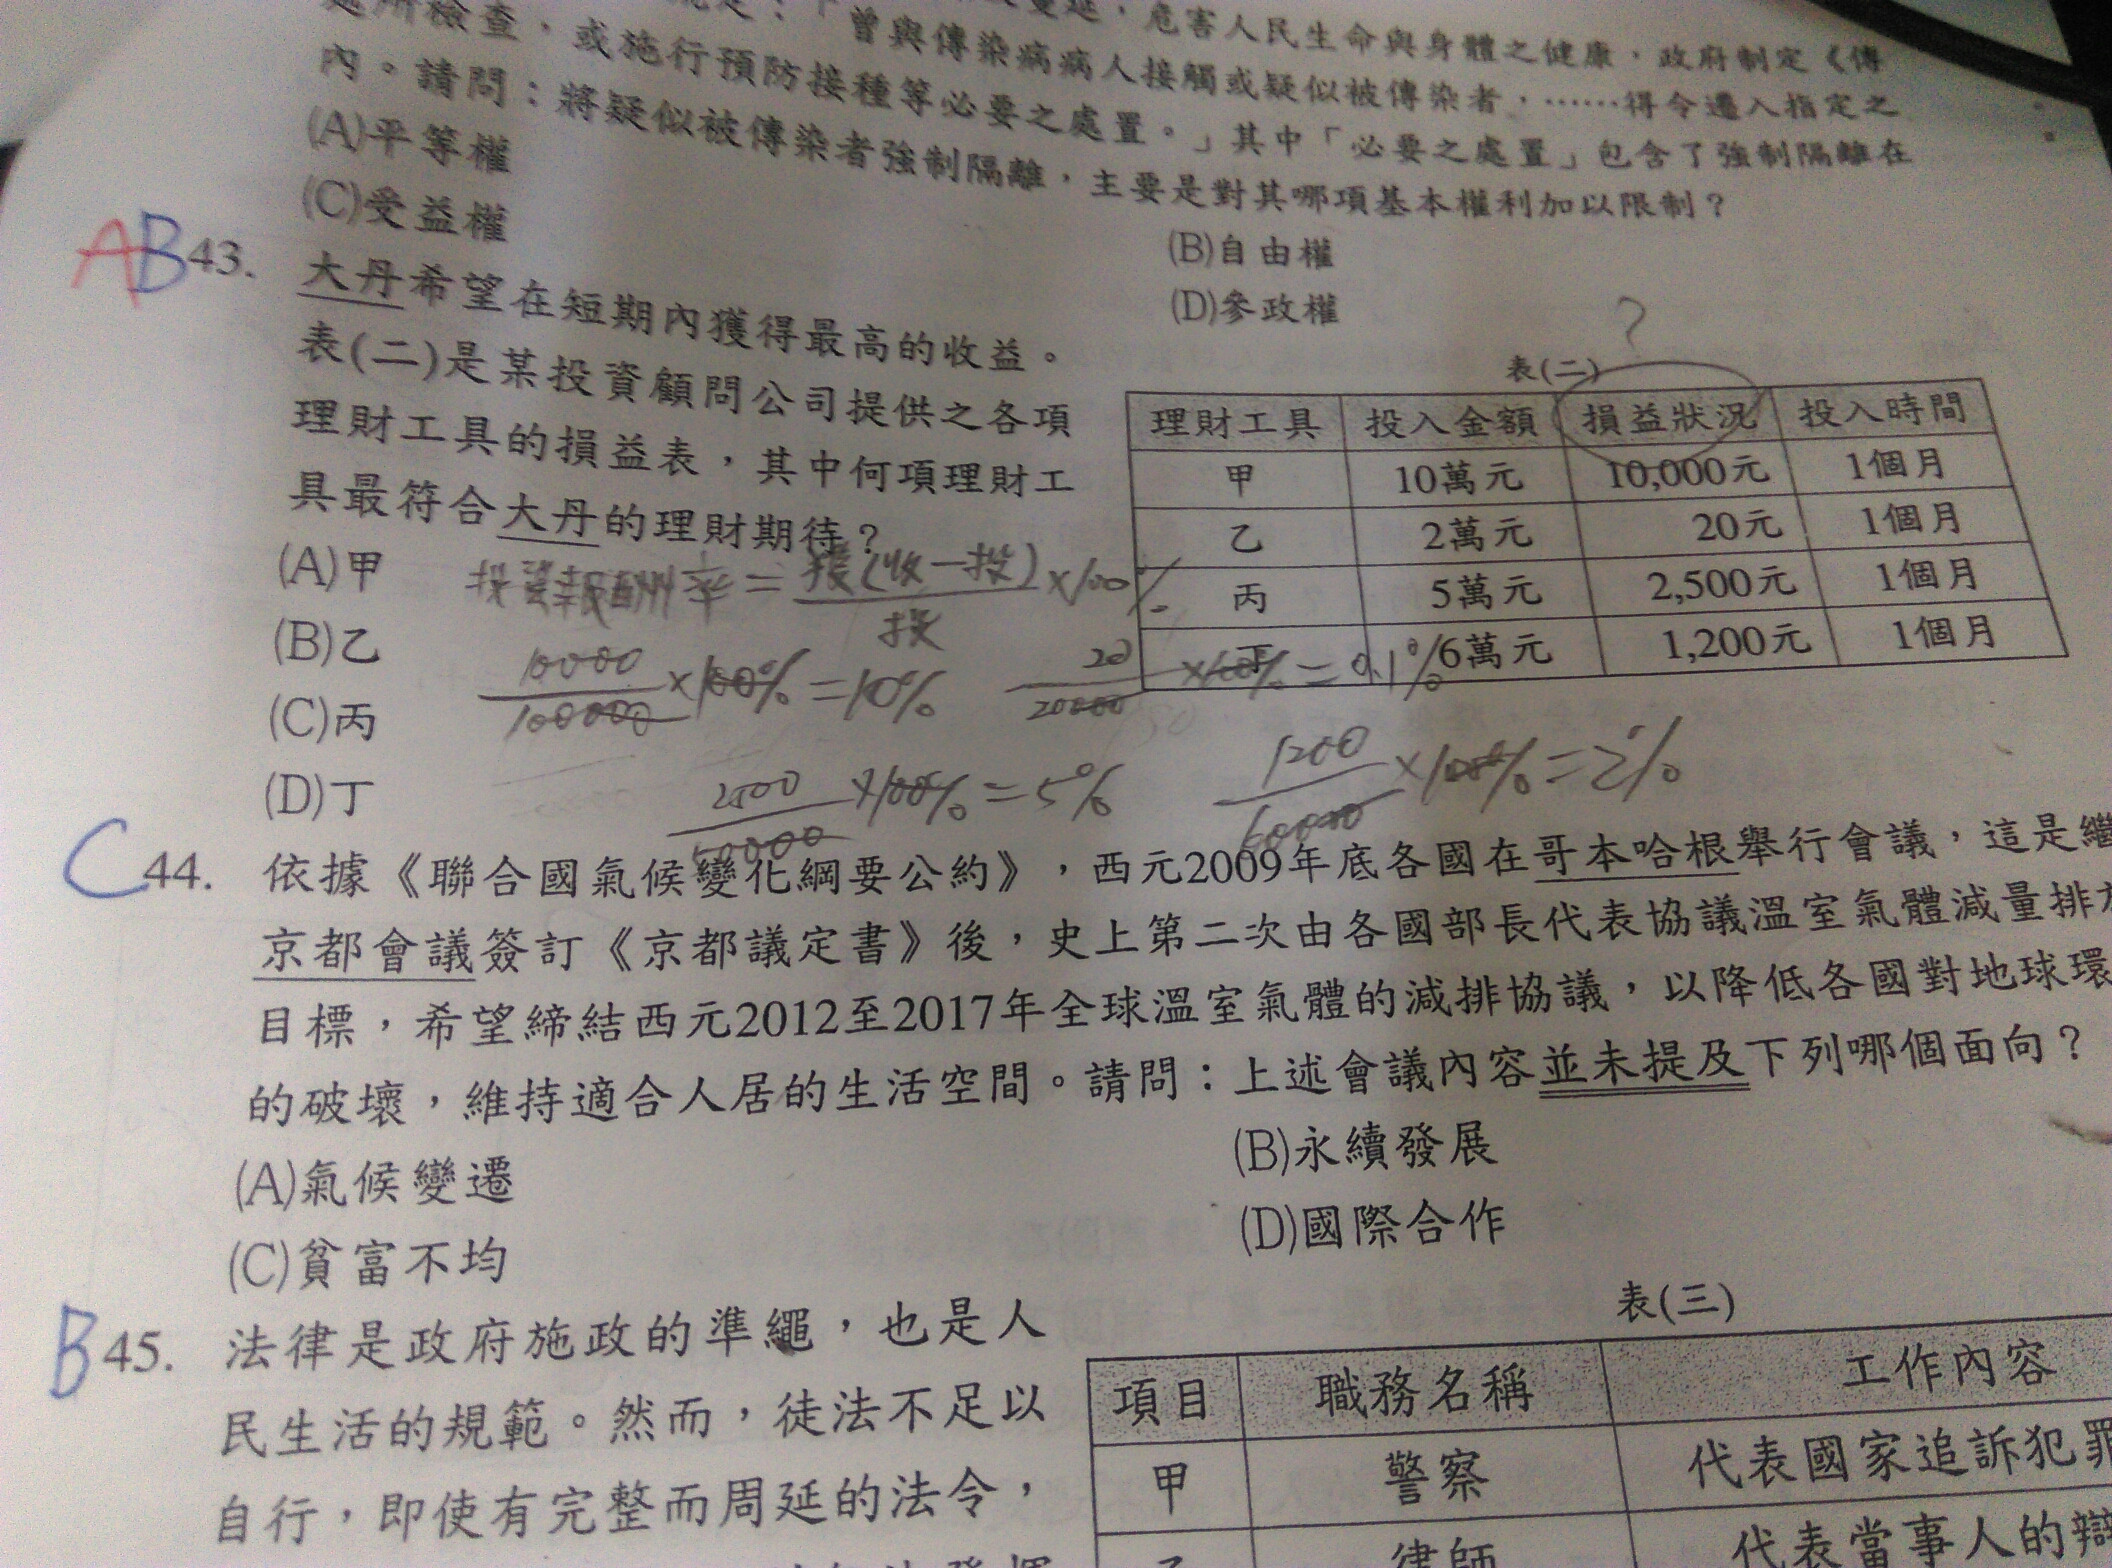 危害人民生命與身體之健康，政府制定《傳
「曾與傳染病病人接觸或疑似被傳染者，……得令遷入指定之
處所檢查，或施行預防接種等必要之處置。」其中「必要之處置」包含了強制隔離在
內。請問：將疑似被傳染者強制隔離，主要是對其哪項基本權利加以限制？
(A)平等權
(B)自由權
(C)受益權
(D)參政權
AB 43. 大丹希望在短期內獲得最高的收益。
表(二)是某投資顧問公司提供之各項
理財工具的損益表，其中何項理財工
具最符合大丹的理財期待？
(A)甲
(B)乙
(C)丙
(D)丁
?
表(二)
理財工具 投入金額 損益狀況 投入時間
甲 10萬元 10,000元 1個月
乙 2萬元 20元 1個月
丙 5萬元 2,500元 1個月
丁 6萬元 1,200元 1個月
投資報酬率 = (收-投) / 投 ×100%
10000/100000 ×100% = 10%
20/20000 ×100% = 0.1%
2500/50000 ×100% = 5%
1200/60000 ×100% = 2%
C 44. 依據《聯合國氣候變化綱要公約》，西元2009年底各國在哥本哈根舉行會議，這是繼
京都會議簽訂《京都議定書》後，史上第二次由各國部長代表協議溫室氣體減量排放
目標，希望締結西元2012至2017年全球溫室氣體的減排協議，以降低各國對地球環
的破壞，維持適合人居的生活空間。請問：上述會議內容並未提及下列哪個面向？
(A)氣候變遷
(B)永續發展
(C)貧富不均
(D)國際合作
B 45. 法律是政府施政的準繩，也是人
民生活的規範。然而，徒法不足以
自行，即使有完整而周延的法令，
表(三)
項目 職務名稱 工作內容
甲 警察 代表國家追訴犯罪
乙 律師 代表當事人的辯